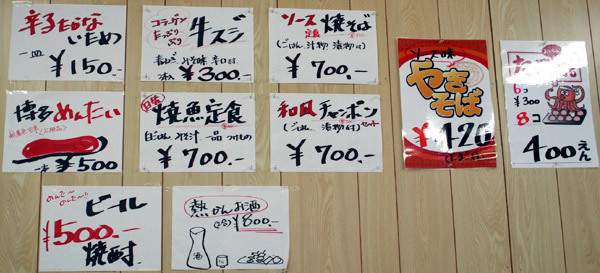 辛子たかな
いため
一皿
¥150.-
コラーゲン
たっぷり
牛スジ
¥300.-
ソース焼そば
定食
(ごはん、汁物 漬物付)
¥700.-
博多めんたい
一本
¥500
日替
焼魚定食
¥700.-
和風チャンポン
(ごはん 漬物付)セット
¥700.-
ソース味
やきそば
¥420
6コ
¥300
8コ
400えん
のんだ〜
のんだ〜
ビール
¥500.-
焼酎
熱かんお酒
¥300.-
酒